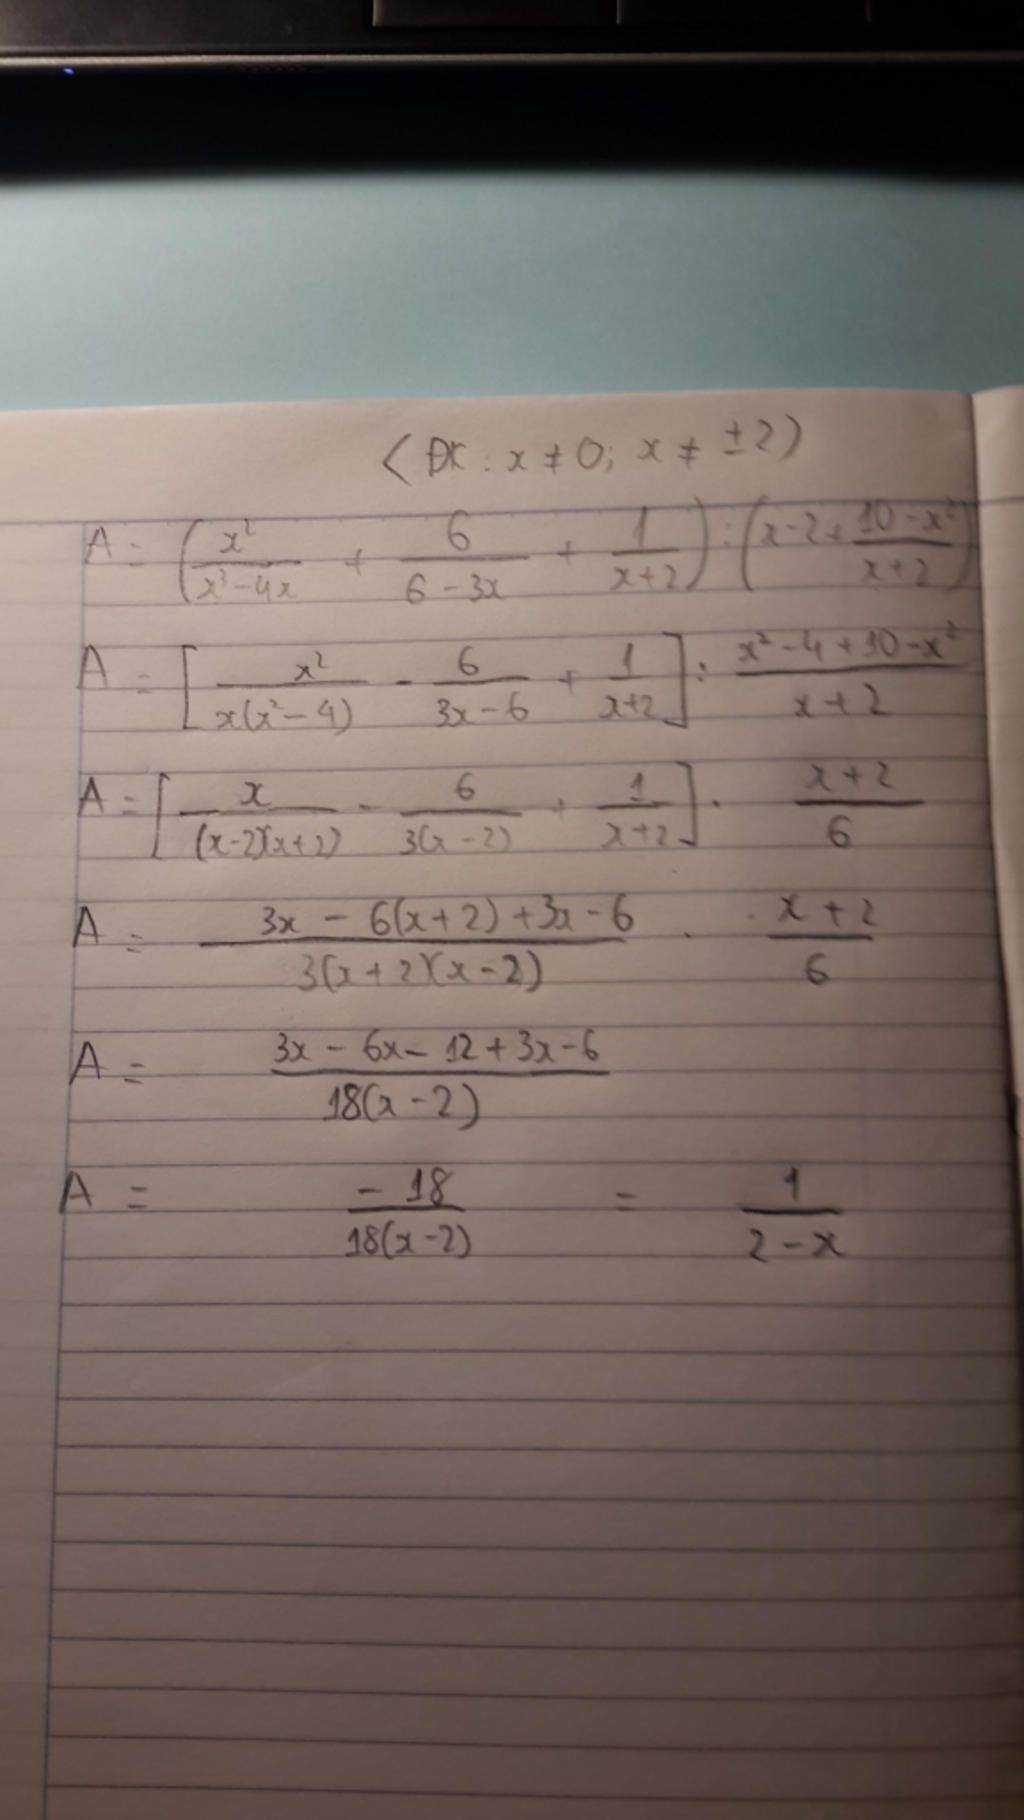 (ĐK: x ≠ 0; x ≠ ±2)
A = (x²/(x³-4x) + 6/(6-3x) + 1/(x+2)) : (x-2+(10-x²)/(x+2))
A = [x²/(x(x²-4)) - 6/(3x-6) + 1/(x+2)] : (x²-4+10-x²)/(x+2)
A = [x/((x-2)(x+2)) - 6/(3(x-2)) + 1/(x+2)] . (x+2)/6
A = (3x - 6(x+2) + 3x - 6)/(3(x+2)(x-2)) . (x+2)/6
A = (3x - 6x - 12 + 3x - 6)/(18(x-2))
A = -18/(18(x-2)) = 1/(2-x)